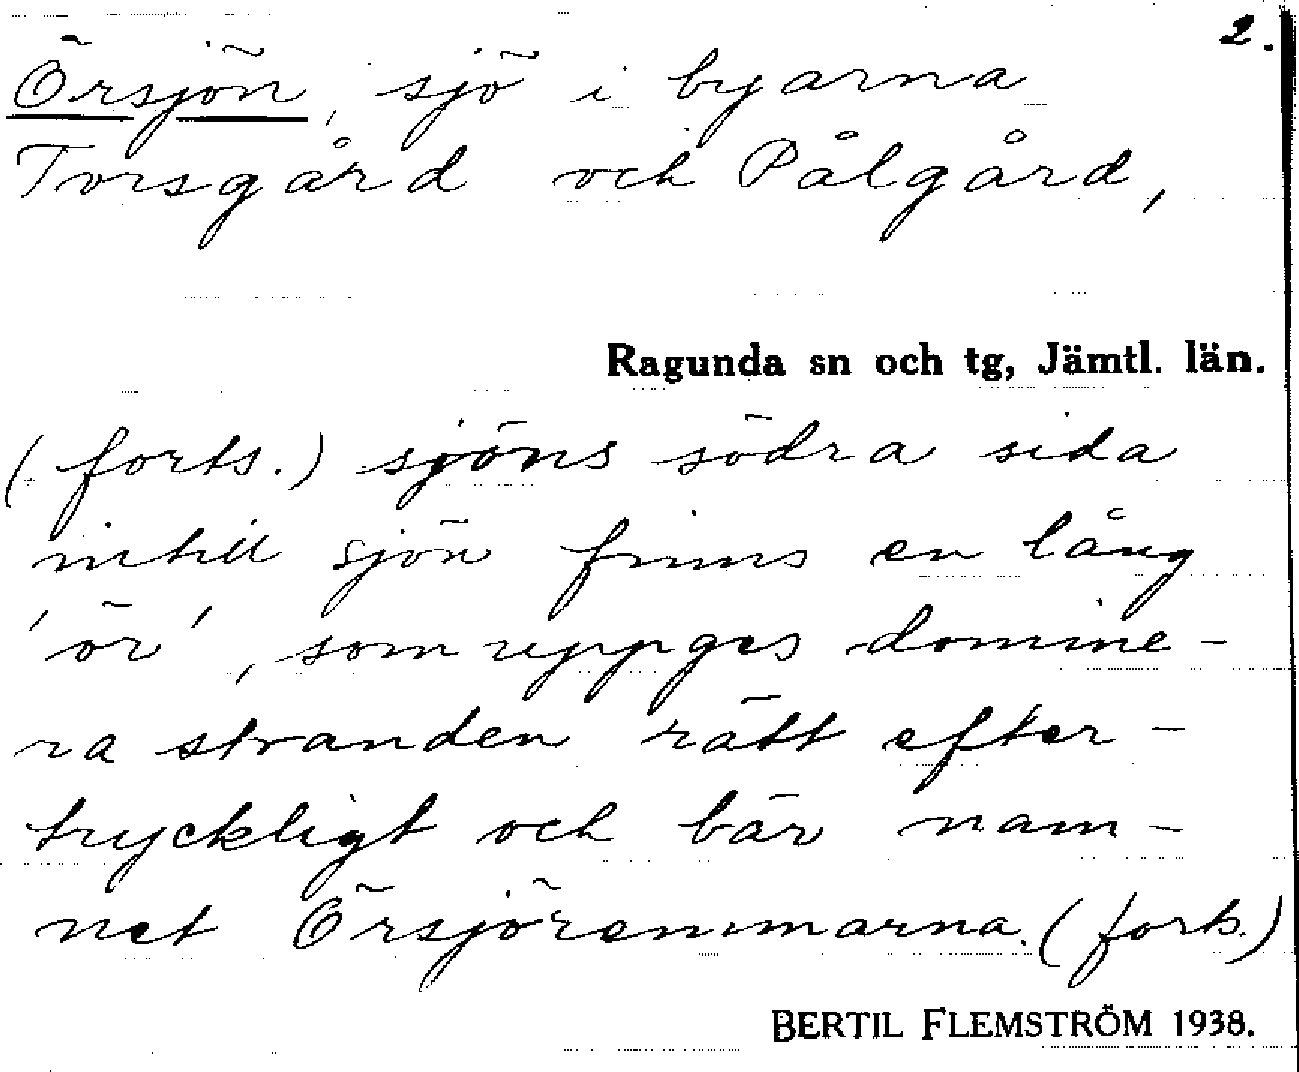 2.
Örsjön, sjö i byarna
Torsgård och Pålgård,
Ragunda sn och tg, Jämtl. län.
(forts.) sjöns södra sida
intill sjön finns en lång
'ör', som uppges domine-
ra stranden rätt efter-
tryckligt och bär nam-
net Örsjöremmarna. (forts.)
BERTIL FLEMSTRÖM 1938.